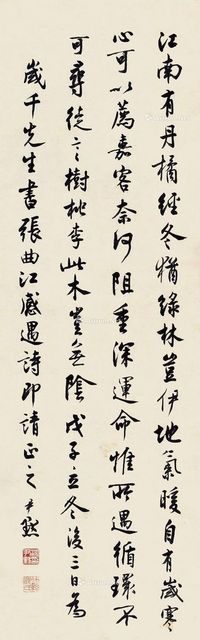 江南有丹橘經冬猶綠林豈伊地氣暖自有歲寒
心可以薦嘉客奈何阻重深運命惟所遇循環不
可尋徒言樹桃李此木豈無陰戊子立冬後三日為
嵗千先生書張曲江感遇詩即請正之尹默